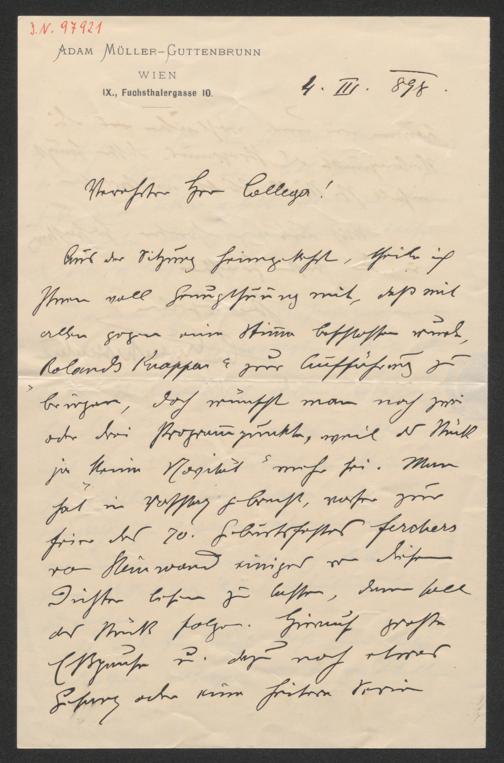 J.N. 97921
ADAM MÜLLER-GUTTENBRUNN
WIEN
IX., Fuchsthalergasse 10.
4. III. 898.
Verehrter Herr College!
Aus der Sitzung heimgekehrt, theile ich
Ihnen voll Genugthuung mit, daß mit
allen gegen eine Stimme beschlossen wurde,
"Rolands Knappen" zur Aufführung zu
bringen, doch wünscht man noch zwei
oder drei Programmpunkte, weil das Stück
ja "keine Novität" mehr sei. Man
hat in Vorschlag gebracht, vorher zur
Feier des 70. Geburtsfestes Ferchers
von Steinwand einiges von diesem
Dichter lesen zu lassen, dann soll
das Stück folgen. Hierauf große
Eßpause u. dazu noch etwas
Gesang oder eine heitere